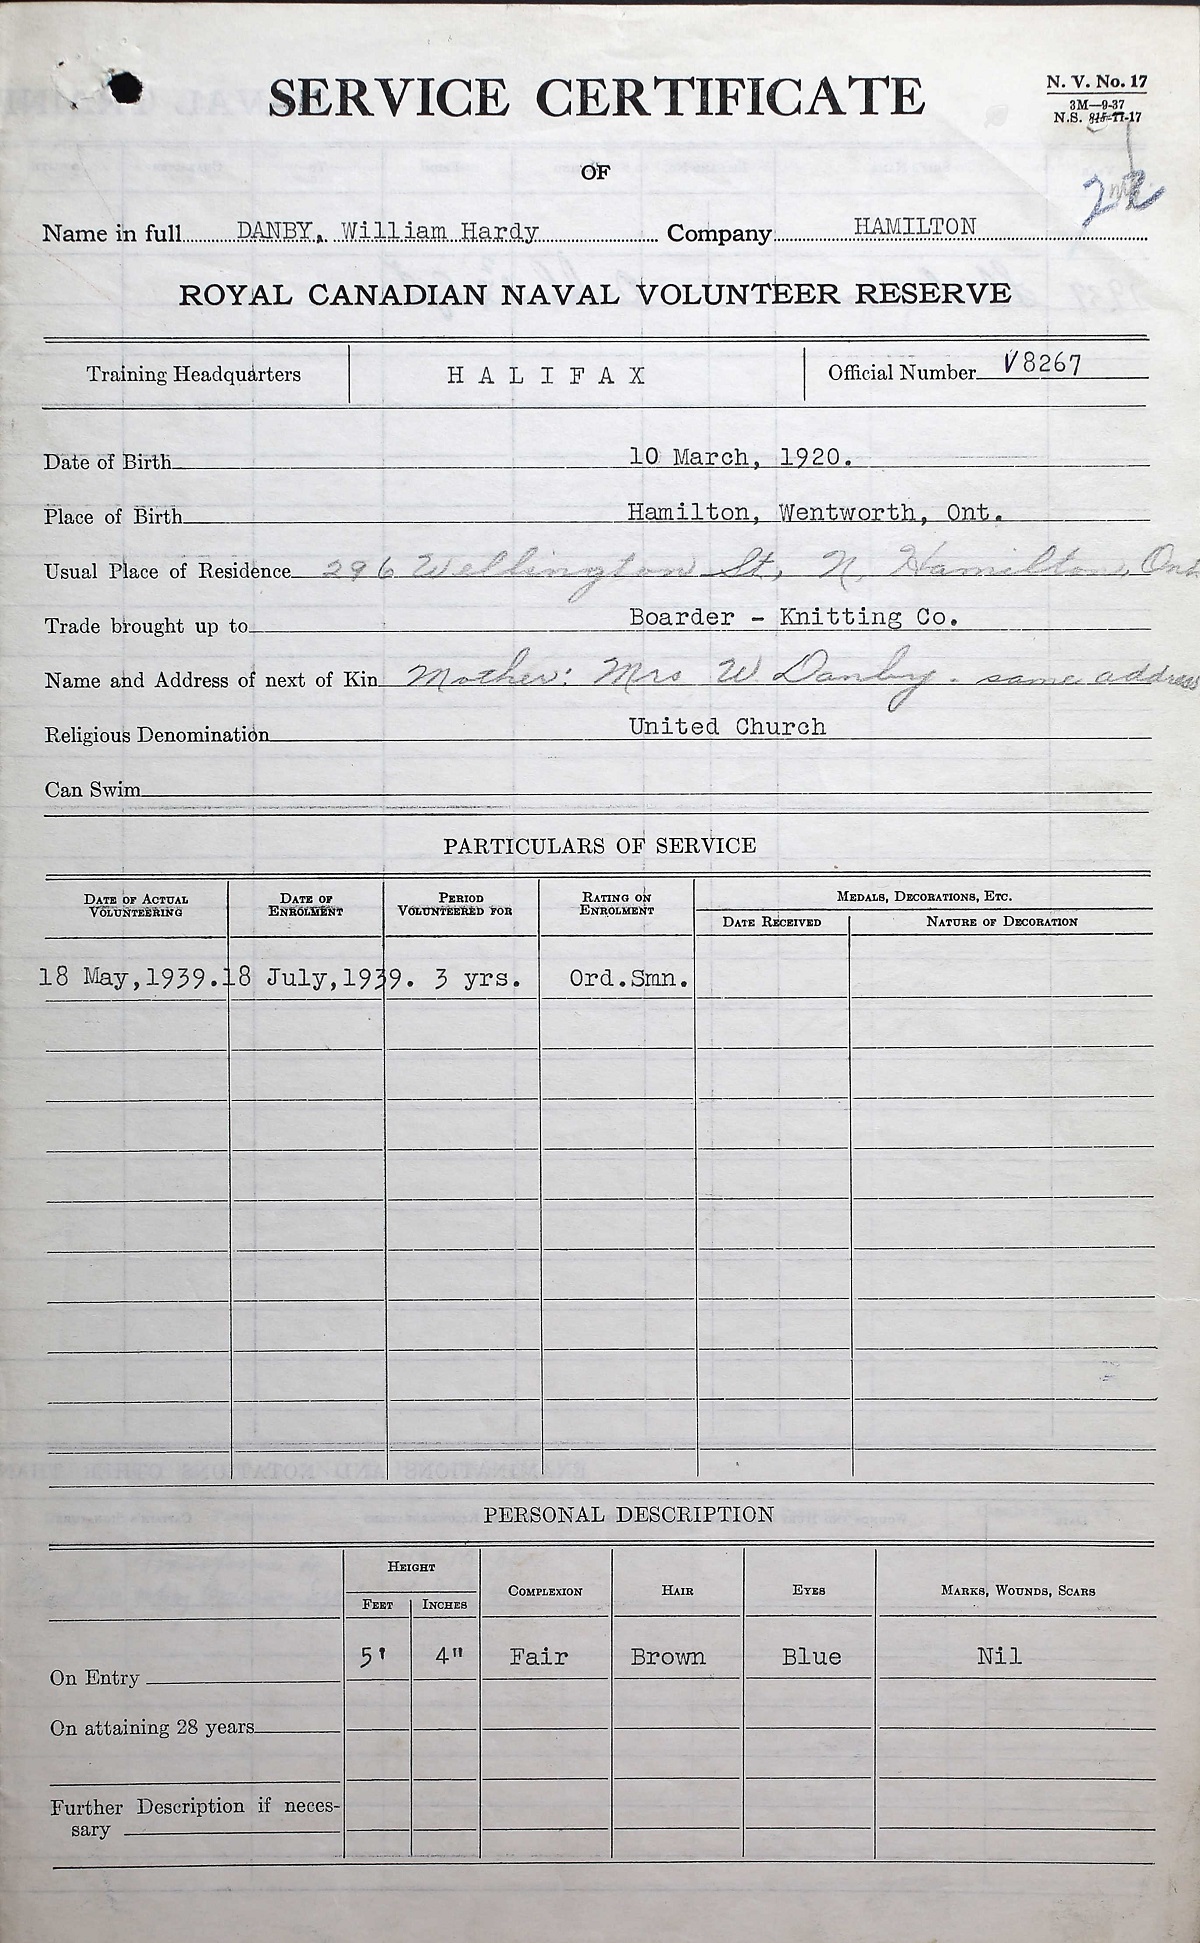 SERVICE CERTIFICATE
N. V. No. 17
3M—9-37
N.S. 815-11-17
OF
2nd
Name in full DANBY, William Hardy Company HAMILTON
ROYAL CANADIAN NAVAL VOLUNTEER RESERVE
Training Headquarters HALIFAX Official Number V8267
Date of Birth 10 March, 1920.
Place of Birth Hamilton, Wentworth, Ont.
Usual Place of Residence 296 Wellington St, N. Hamilton, Ont
Trade brought up to Boarder - Knitting Co.
Name and Address of next of Kin Mother: Mrs W Danby - same address
Religious Denomination United Church
Can Swim
PARTICULARS OF SERVICE
DATE OF ACTUAL VOLUNTEERING DATE OF ENROLMENT PERIOD VOLUNTEERED FOR RATING ON ENROLMENT MEDALS, DECORATIONS, ETC.
DATE RECEIVED NATURE OF DECORATION
18 May,1939. 18 July,1939. 3 yrs. Ord.Smn.
PERSONAL DESCRIPTION
HEIGHT COMPLEXION HAIR EYES MARKS, WOUNDS, SCARS
FEET INCHES
On Entry 5' 4" Fair Brown Blue Nil
On attaining 28 years
Further Description if neces-
sary